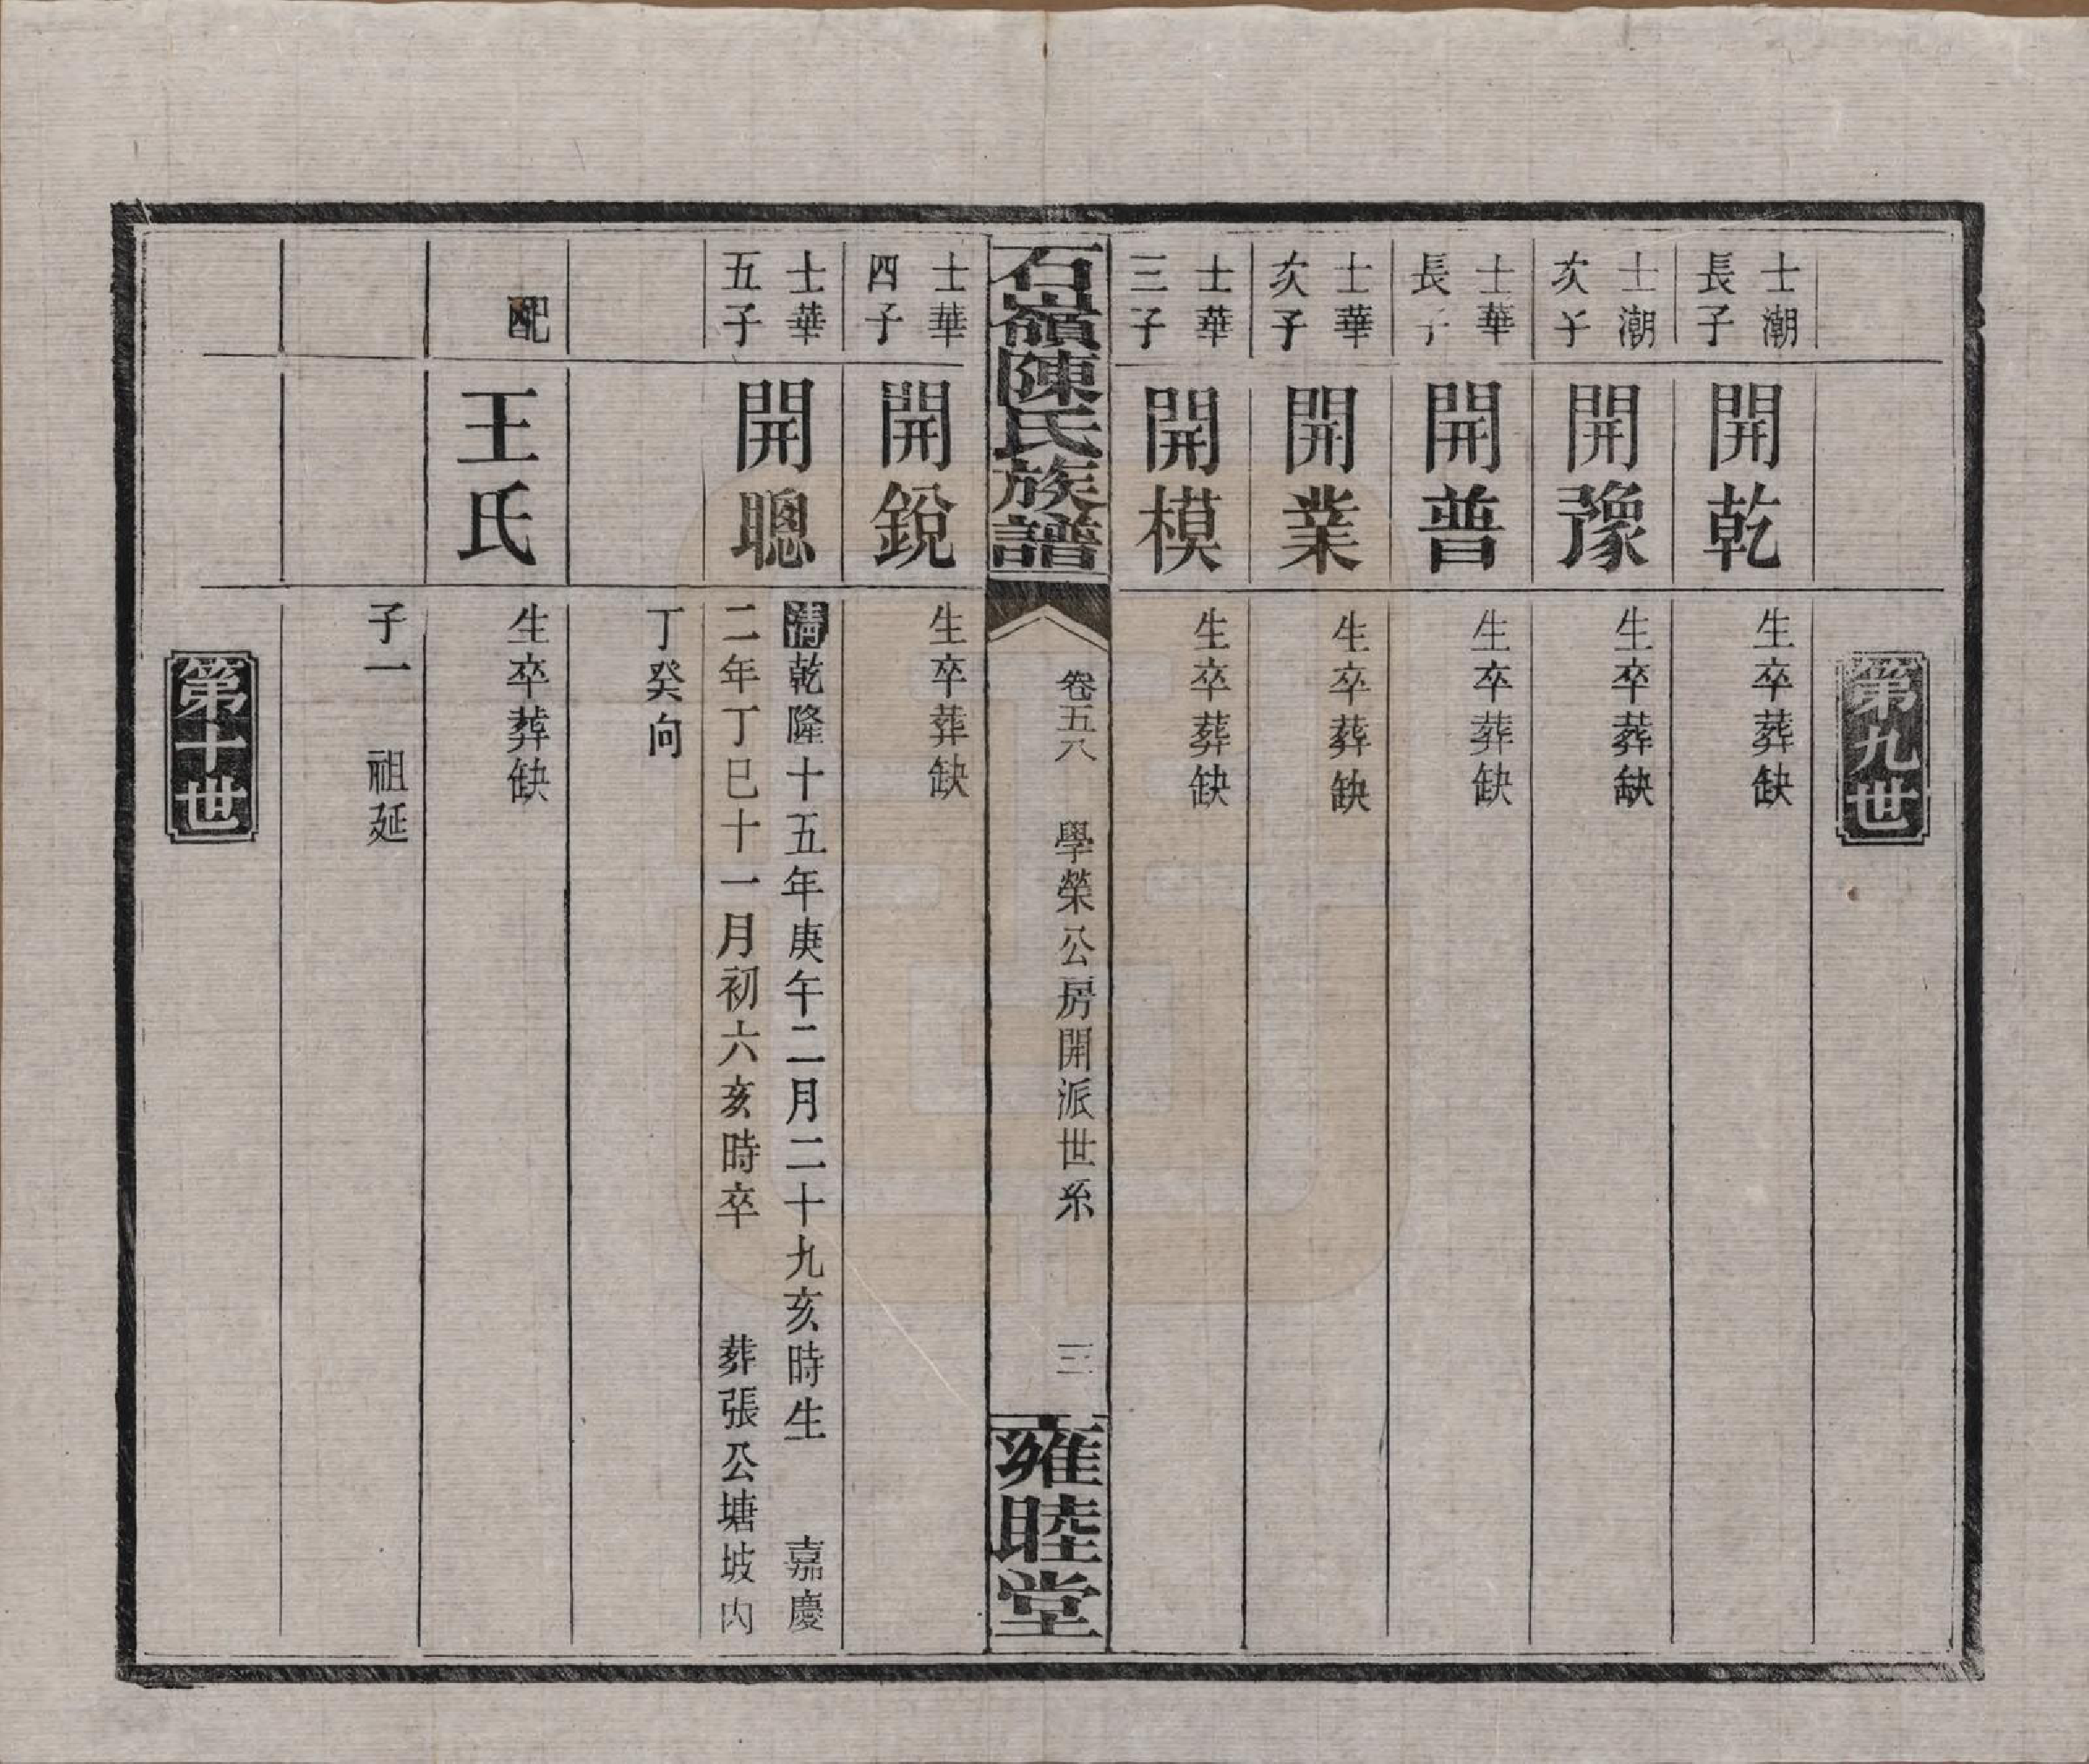 第九世
士潮
長子
開乾
生卒葬缺
士潮
次子
開豫
生卒葬缺
士華
長子
開普
生卒葬缺
士華
次子
開業
生卒葬缺
士華
三子
開模
生卒葬缺
石嶺陳氏族譜
卷五八　學榮公房開派世系　三
雍睦堂
士華
四子
開銳
生卒葬缺
士華
五子
開聰
清乾隆十五年庚午二月二十九亥時生　嘉慶
二年丁巳十一月初六亥時卒　葬張公塘坡內
丁癸向
配
王氏
生卒葬缺
子一　祖延
第十世